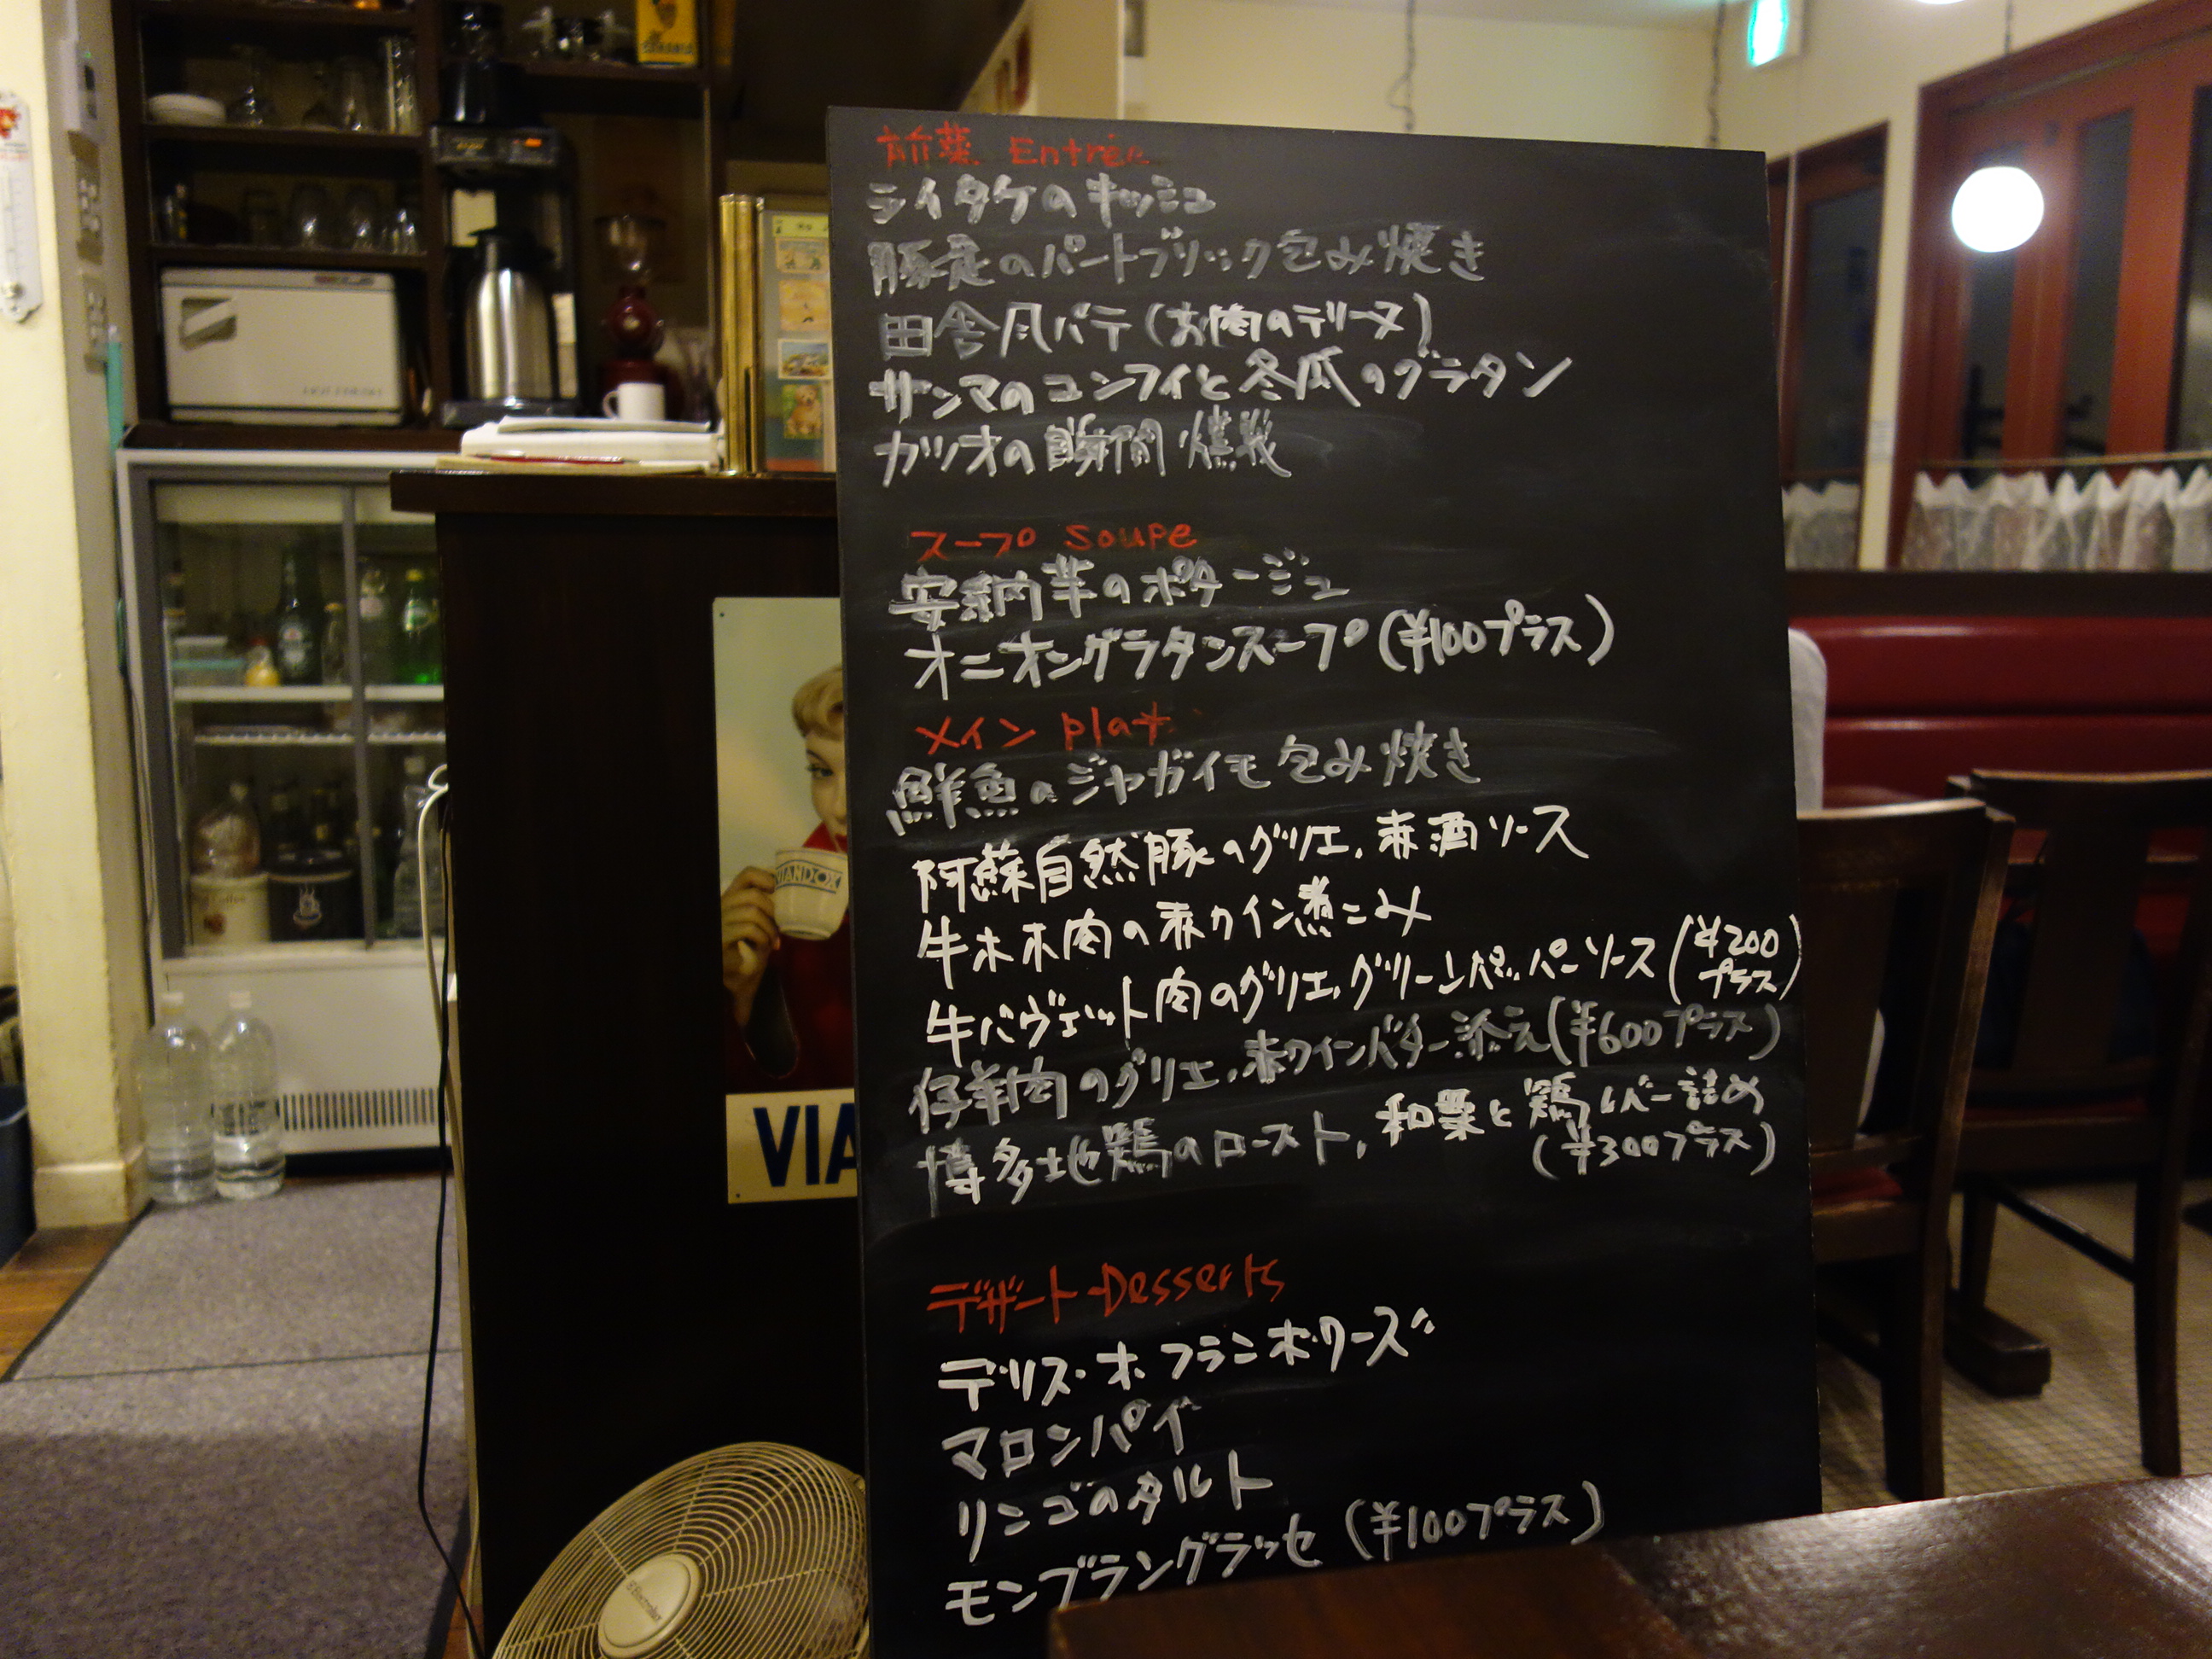 前菜 Entrée
シイタケのキッシュ
豚足のパートブリック包み焼き
田舎風パテ(お肉のテリーヌ)
サンマのコンフィと冬瓜のグラタン
カツオの瞬間燻製
スープ Soupe
安納芋のポタージュ
オニオングラタンスープ(¥100プラス)
メイン Plat
鮮魚のジャガイモ包み焼き
阿蘇自然豚のグリエ、赤酒ソース
牛ホホ肉の赤ワイン煮こみ
牛バヴェット肉のグリエ、グリーンペッパーソース(¥200プラス)
仔羊肉のグリエ、赤ワインバター添え(¥600プラス)
博多地鶏のロースト、和栗と鶏レバー詰め
(¥300プラス)
デザート Desserts
デリス・オ・フランボワーズ
マロンパイ
リンゴのタルト
モンブラングラッセ(¥100プラス)
VIANDOX
VIA
Electrolux